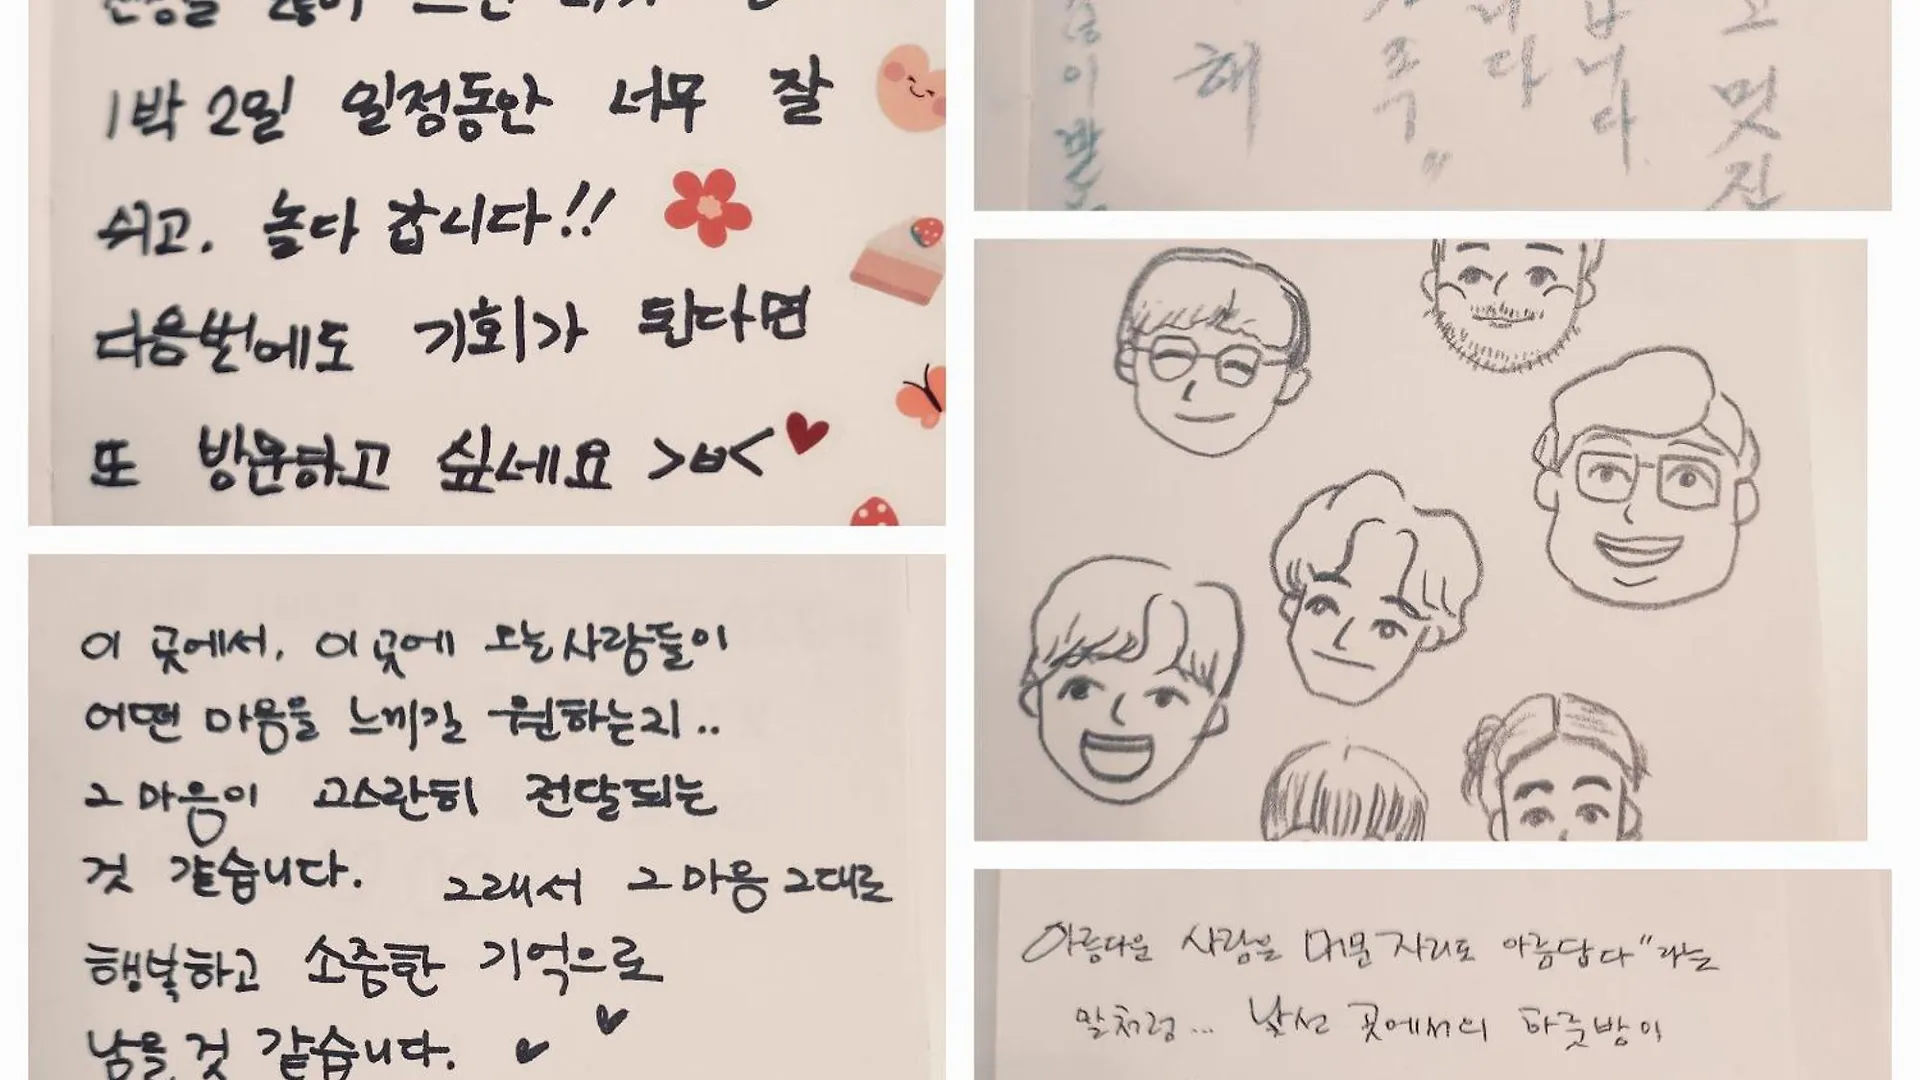 1박 2일 일정동안 너무 잘
쉬고, 놀다 갑니다!!
다음번에도 기회가 된다면
또 방문하고 싶네요 >ㅂ<
이 곳에서, 이 곳에 오는 사람들이
어떤 마음을 느끼길 원하는지..
그 마음이 고스란히 전달되는
것 같습니다. 그래서 그 마음 그대로
행복하고 소중한 기억으로
남을 것 같습니다.
해
주"
니다
갑니다
고 멋진
아름다운 사람은 머문 자리도 아름답다"라는
말처럼... 낯선 곳에서의 하룻밤이